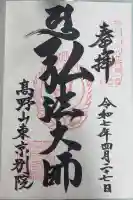 奉拝
令和七年四月二十七日
弘法大師
高野山東京別院